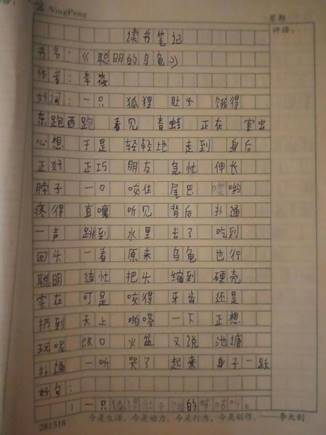 NingFeng 星期
读书笔记 评语:
书名:《聪明的乌龟》
作者:李薇
好词:一只 狐狸 肚子 饿得
东跑西跑 看见 青蛙 正在
心想 于是 轻轻地 走到 身后
正好 正巧 朋友 急忙 伸长
脖子 一口 咬住 尾巴 哎哟
疼得 直嚷 听见 背后 扑通
一声 跳到 水里 去了 吃到
回头 一看 原来 乌龟 也行
聪明 连忙 把头 缩到 硬壳
实在 可是 咬得 牙齿 还是
扔到 天上 啪嗒 一下 正想
火盆 又说 池塘
扑通 一听 哭了 起来 身子 一跃
好句:
一只 的
今是生活,今是动力,今是行为,今是创作。——李大钊